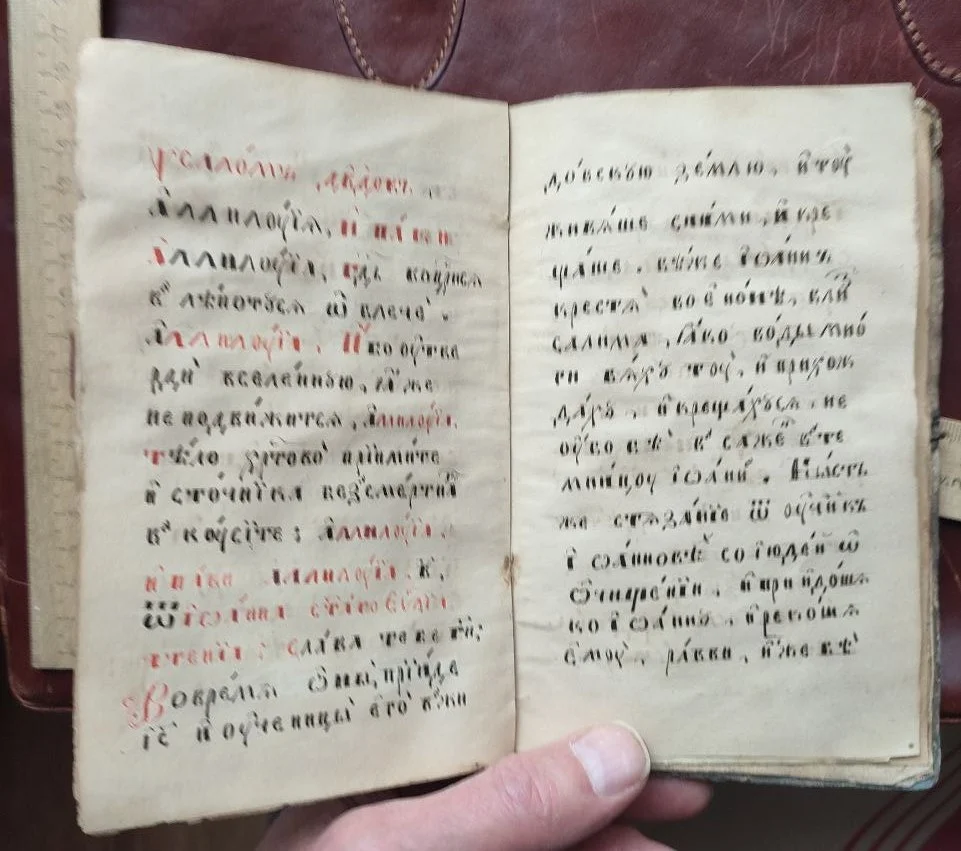 ѱалло́мъ дв҃довъ.
А҆ллилꙋ́їѧ, и҆ па́ки
А҆ллилꙋ́їѧ, гд҇ь воцр҃исѧ
в̾ лѣ́потꙋсѧ ѿ блечѐ.
А҆ллилꙋ́їѧ. И҆́бо ᲂу҆тве
рдѝ вселе́ннꙋю, ꙗ҆́же
не подви́житсѧ, А҆ллилꙋ́їѧ.
тѣ́ло хр҇то́во прїими́те
и҆ сто́чника безсме́ртна
в̾кꙋсѝте: А҆ллилꙋ́їѧ.
и҆ па́ки аллилꙋ́їѧ. в҃.
ѿ іѡа́нна ст҃а́го є҆ѵⷢ҇лїѧ
чте́нїе: сла́ва тебе гд҇и:
Во вре́мѧ ѻ҆́но, прїи́де
і҆с҃ и҆ ᲂу҆ченицы̀ є҆го̀ в̾жи
до́вскꙋю зе́млю, и҆ тꙋ̀
живѧ́ше сни́ми, и҆ кре
ща́ше. бѣ́же і҆ѡа́ннъ
крестѧ̀ во є҆но́нѣ, бли́з̾
салима, ꙗ҆́ко во́ды мно́
ги бѧ́хꙋ тꙋ̀, и҆ прихож
да́хꙋ, и҆ креща́хꙋсѧ. не
ᲂу҆́бо бѣ̀ в̾саже́н̾ в̾те
мни́цꙋ і҆ѡа́нн̾. Бы́сть
же стѧза́нїе ѿ ᲂу҆чн҃къ
і҆ѡа́нновѣхъ со і҆юде́и ѡ҆
ѻ҆чище́нїи, и҆ прїидо́ша
ко і҆ѡа́ннꙋ, и҆ реко́ша
є҆мꙋ̀, ра́вви, и҆́же бѣ̀